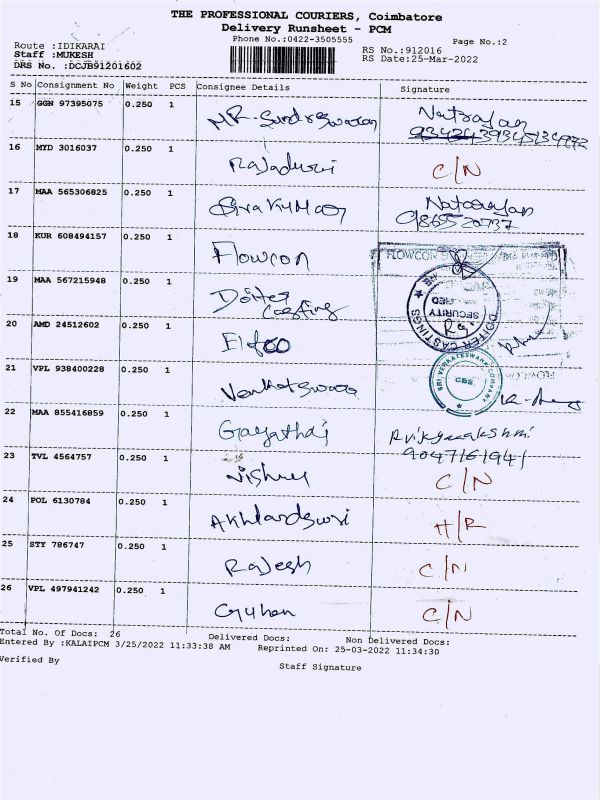 THE PROFESSIONAL COURIERS, Coimbatore
Delivery Runsheet - PCM
Phone No.:0422-3505555
Page No.:2
Route :IDIKARAI
Staff :MUKESH
DRS No. :DCJB91201602
RS No.:912016
RS Date:25-Mar-2022
S No Consignment No Weight PCS Consignee Details Signature
15 GGN 97395075 0.250 1
16 MYD 3016037 0.250 1 C/N
17 MAA 565306825 0.250 1 Sivakumar
9865520737
18 KUR 608494157 0.250 1 Flowcon
FLOWCON
19 MAA 567215948 0.250 1 Doiter Casting
DOITER CASTINGS
SECURITY
20 AMD 24512602 0.250 1
21 VPL 938400228 0.250 1
SRI VENKATESWARA COMPANY
22 MAA 855416859 0.250 1
9047161941
23 TVL 4564757 0.250 1 C/N
24 POL 6130784 0.250 1 H/R
25 STY 786747 0.250 1 Rajesh C/N
26 VPL 497941242 0.250 1 Guhan C/N
Total No. Of Docs: 26 Delivered Docs: Non Delivered Docs:
Entered By :KALAIPCM 3/25/2022 11:33:38 AM Reprinted On: 25-03-2022 11:34:30
Verified By Staff Signature